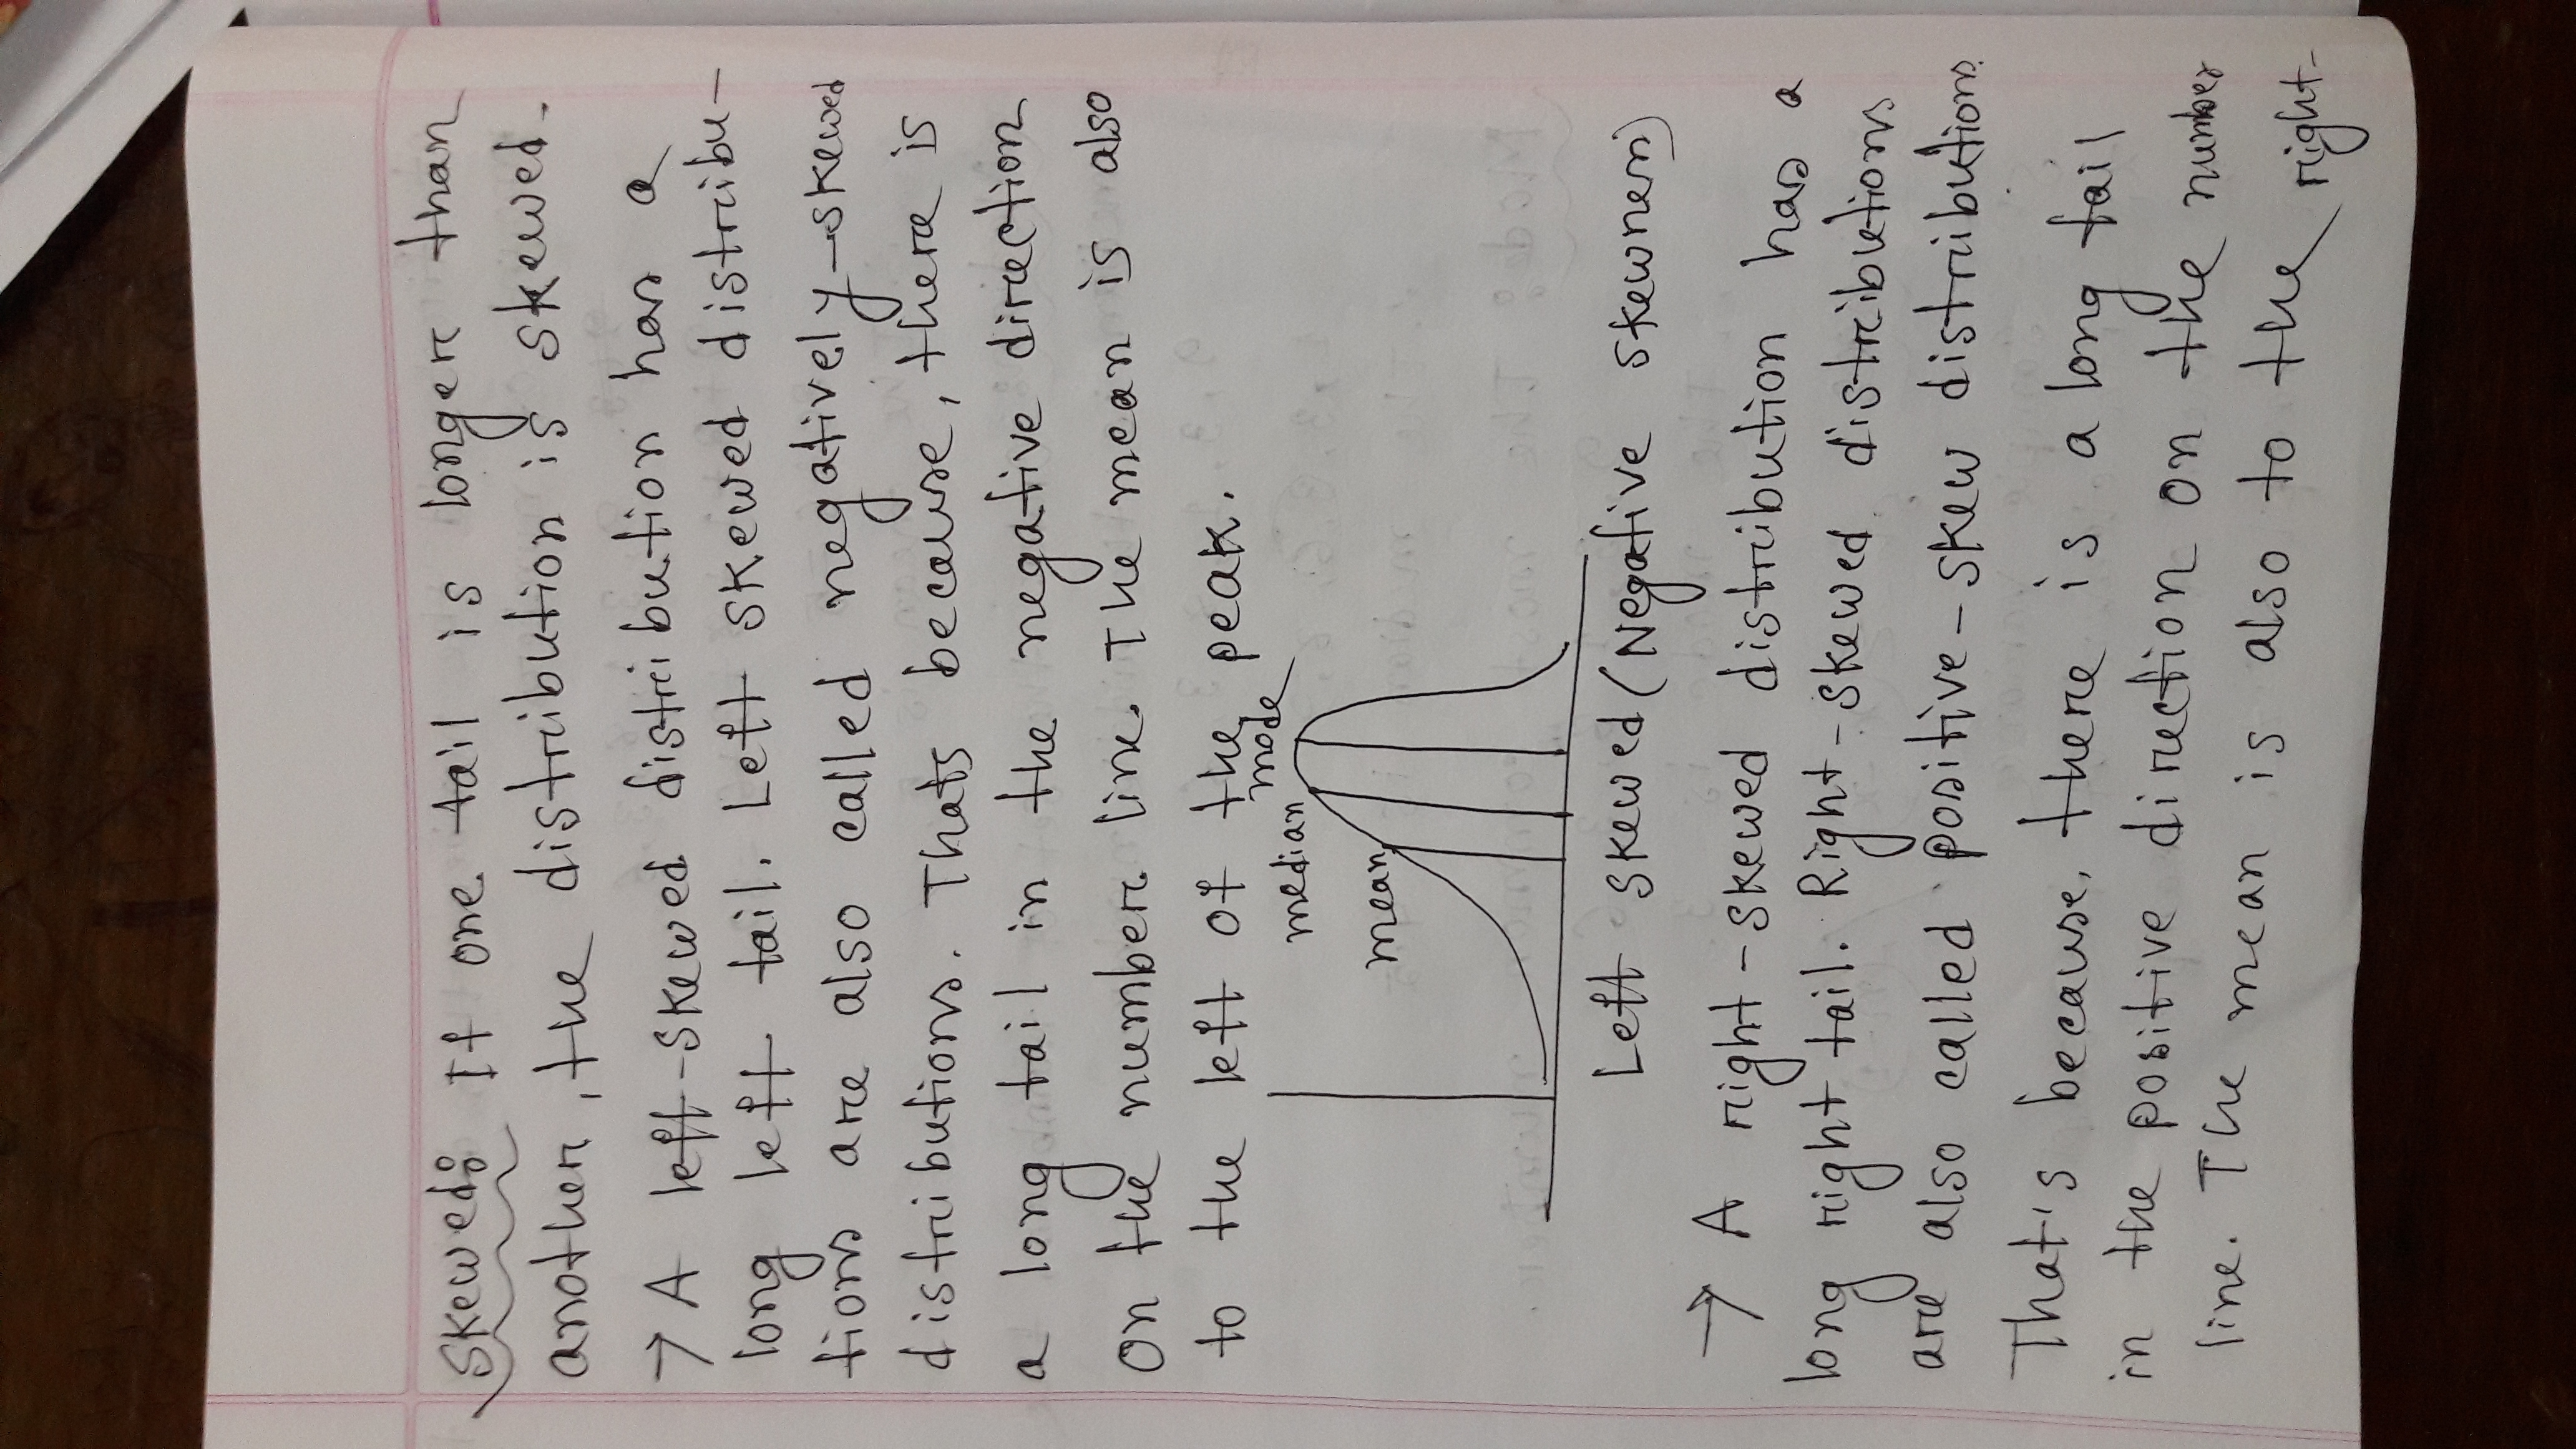 Skewed: If one tail is longer than
another, the distribution is skewed.
→ A left-skewed distribution has a
long left tail. Left skewed distribu-
tions are also called negatively-skewed
distributions. Thats because, there is
a long tail in the negative direction
on the number line. The mean is also
to the left of the peak.
mode
median
mean
Left skewed (Negative skewness)
→ A right-skewed distribution has a
long right tail. Right-skewed distributions
are also called positive-skew distributions.
That's because, there is a long tail
in the positive direction on the number
line. The mean is also to the right-